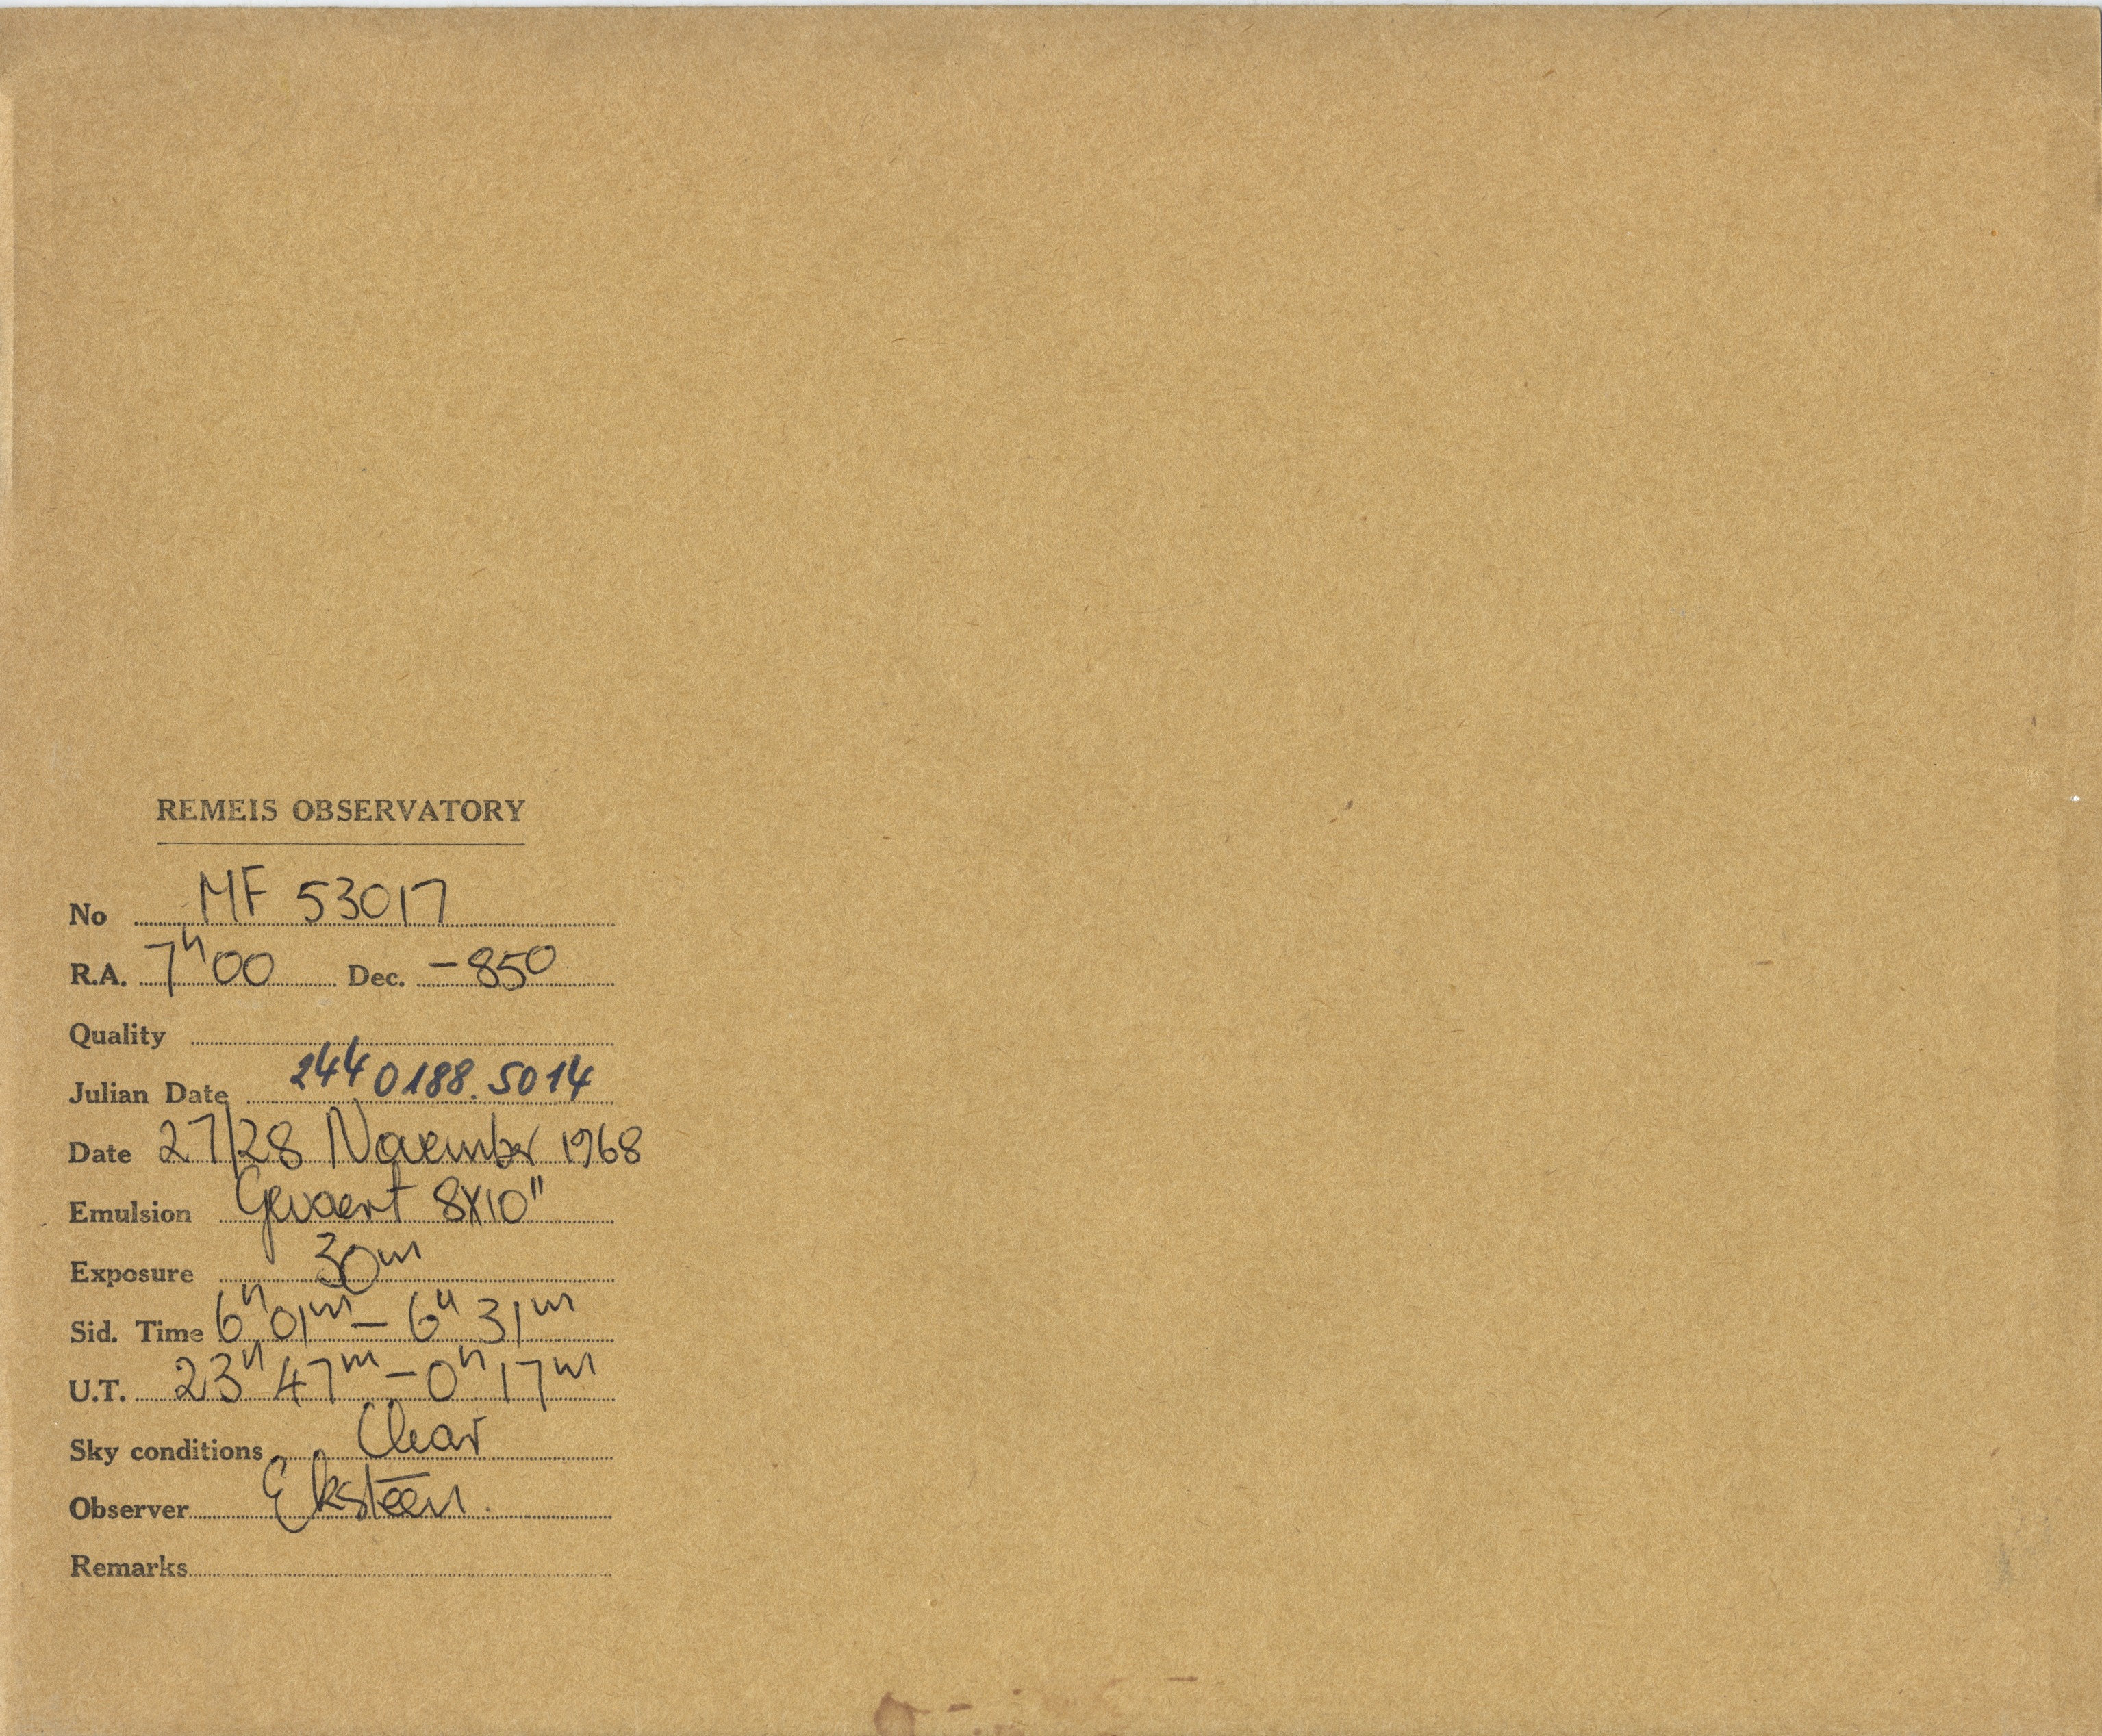 REMEIS OBSERVATORY
No MF 53017
R.A. 7ʰ00 Dec. -85⁰
Quality
Julian Date 2440188.5014
Date 27/28 November 1968
Emulsion Gevaert 8X10"
Exposure 30ᵐ
Sid. Time 6ʰ01ᵐ - 6ʰ31ᵐ
U.T. 23ʰ47ᵐ - 0ʰ17ᵐ
Sky conditions Clear
Observer Eksteen.
Remarks